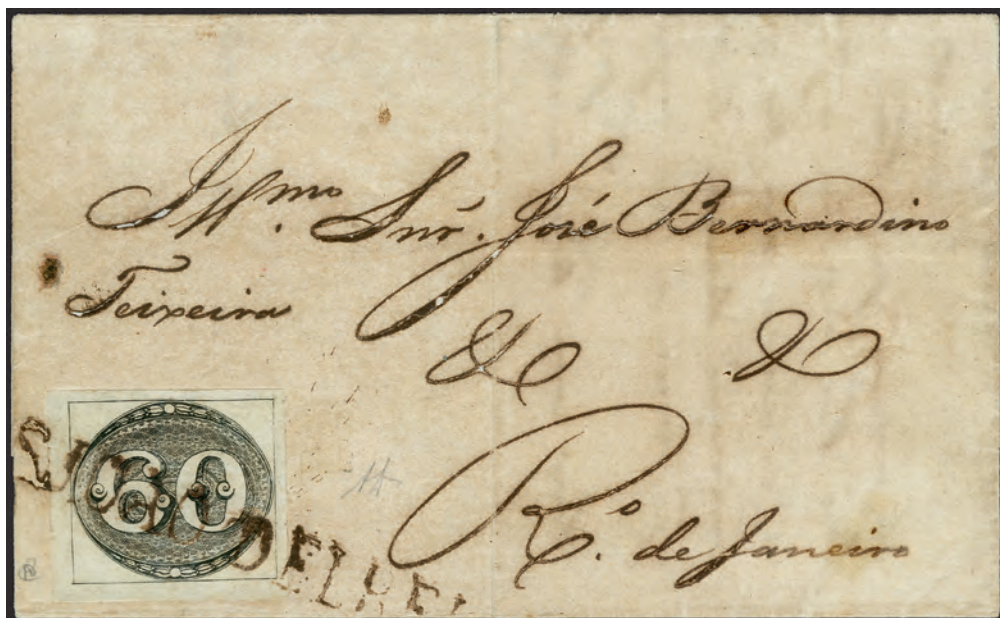 Ill.mo Snr. José Bernardino
Teixeira
& &
R.o de Janeiro
60
DELREI